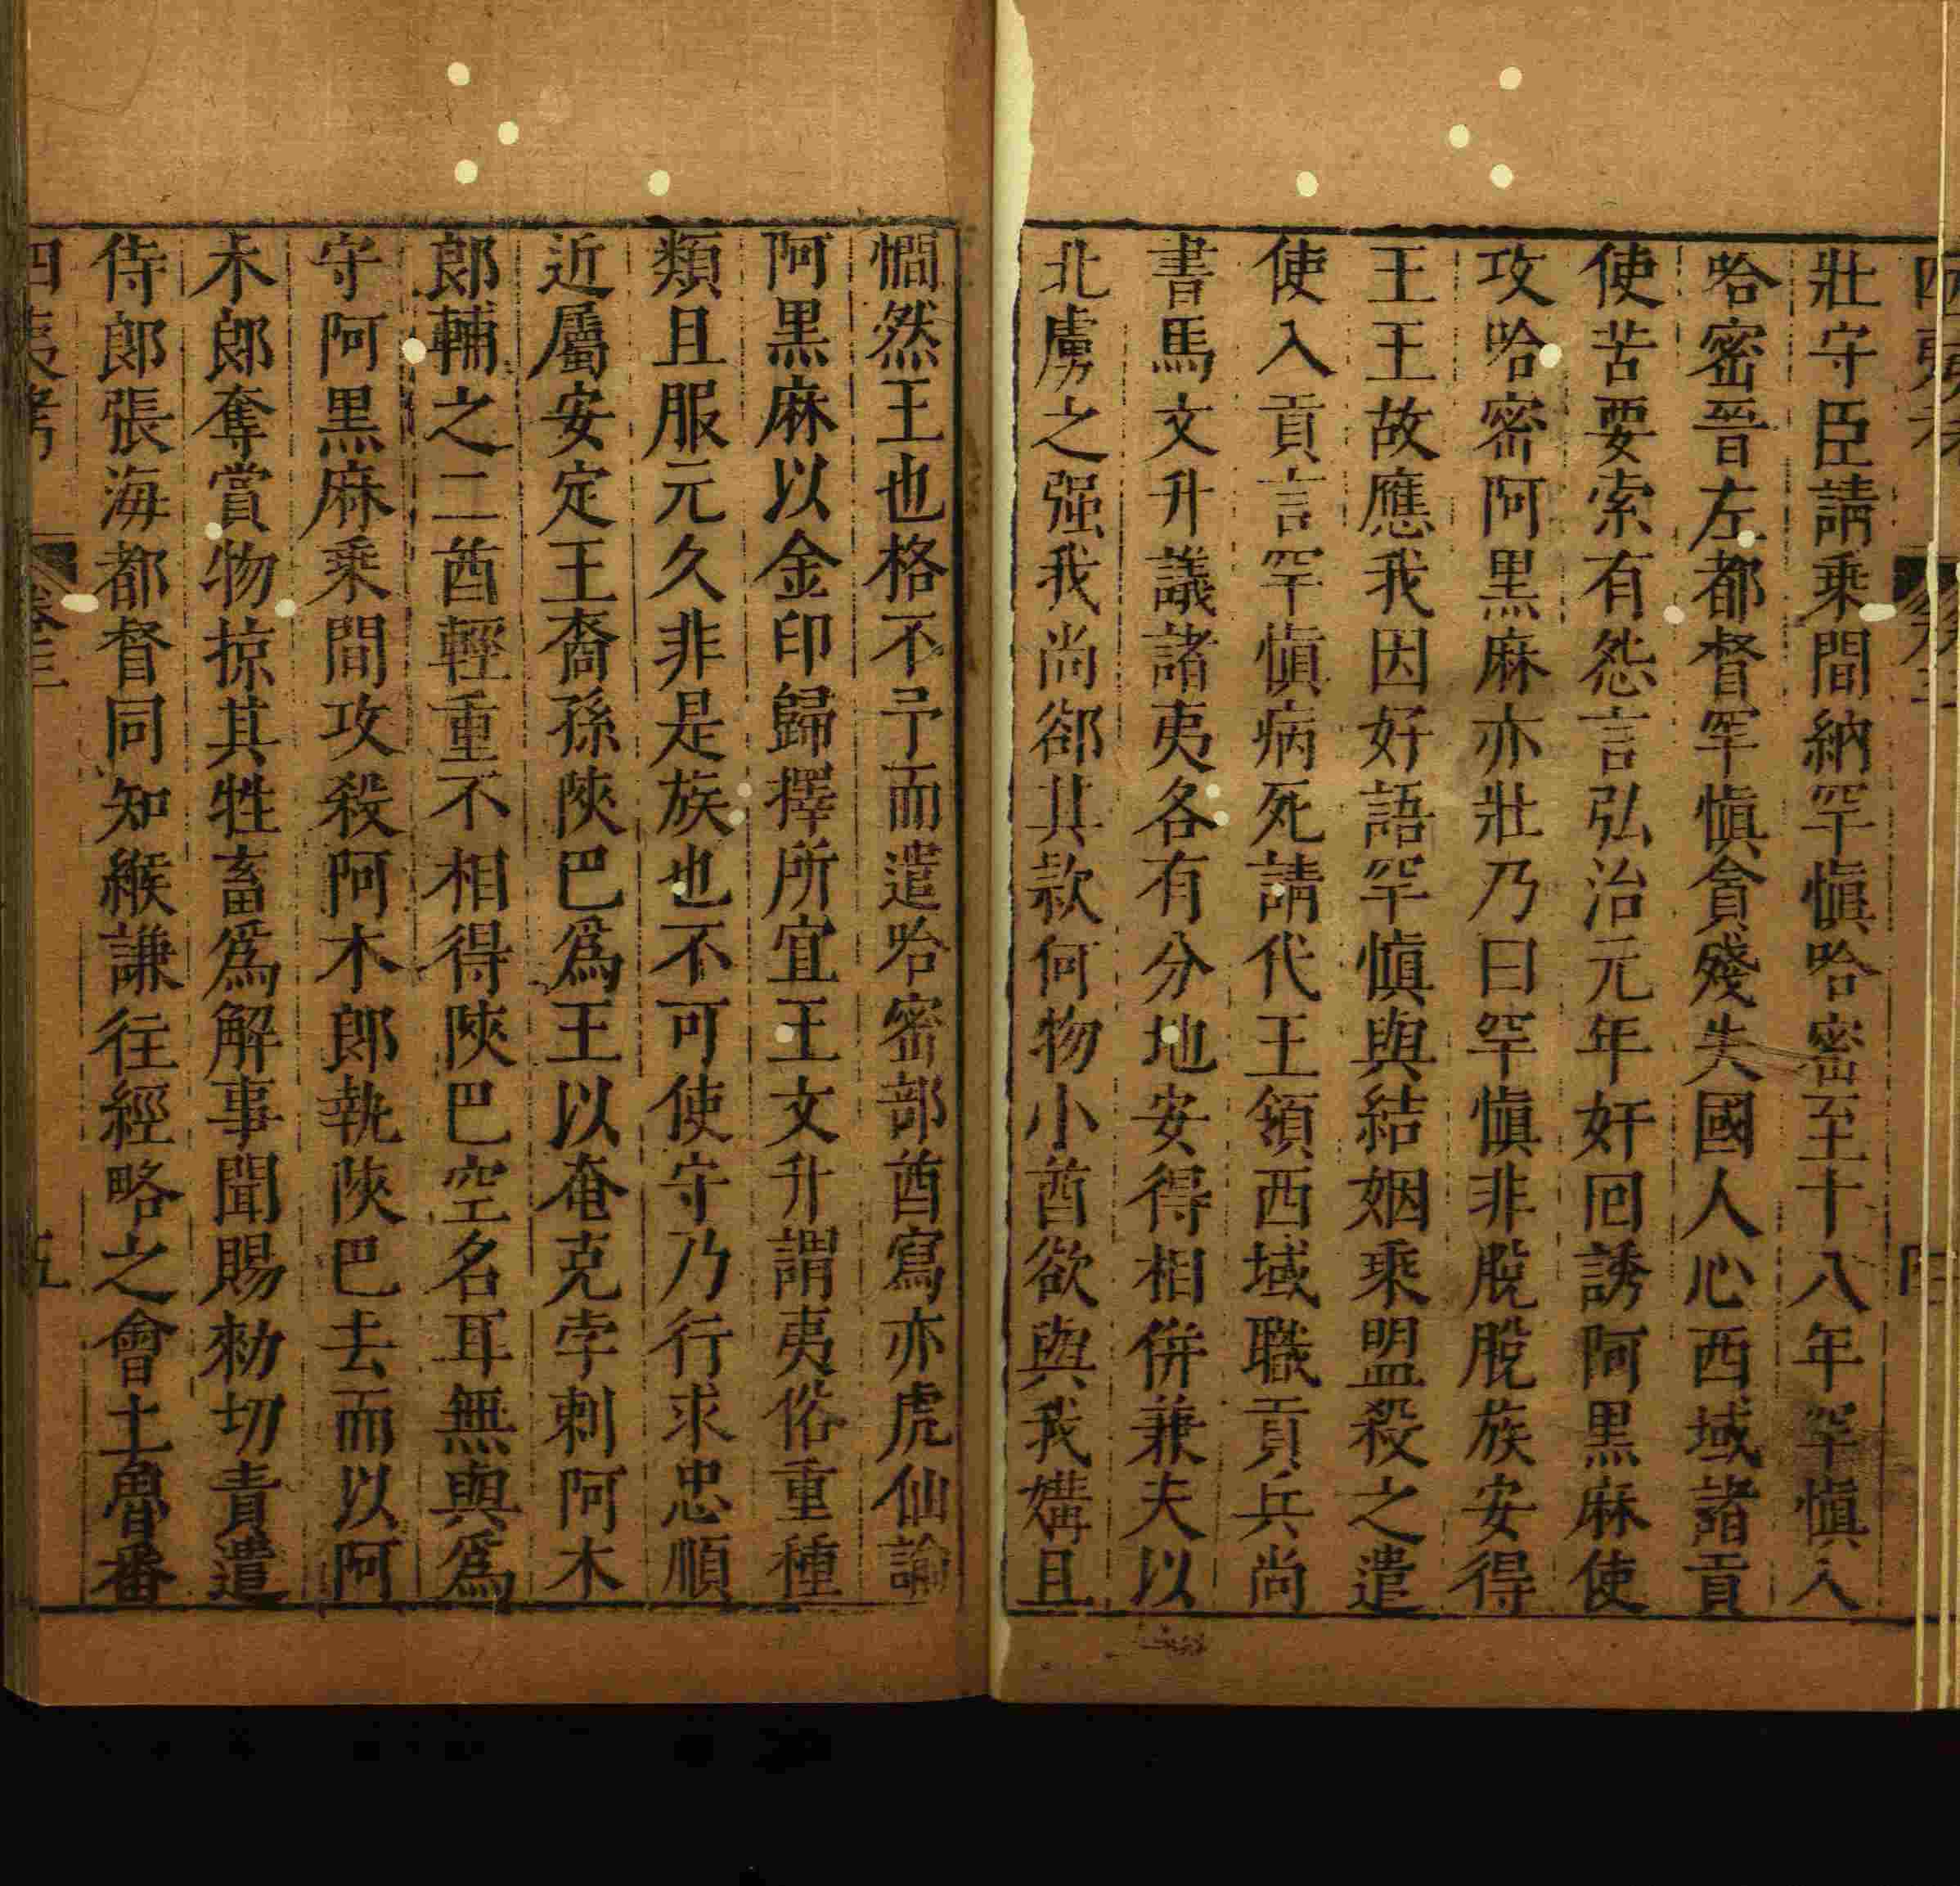 壯守臣請乘間納罕愼哈密至十八年罕愼入
哈密晉左都督罕愼貪殘失國人心西域諸貢
使苦要索有怨言弘治元年奸囘誘阿黑麻使
攻哈密阿黑麻亦壯乃曰罕愼非脫脫族安得
王王故應我因好語罕愼與結姻乘盟殺之遣
使入貢言罕愼病死請代王領西域職貢兵尚
書馬文升議諸夷各有分地安得相併兼夫以
北虜之强我尚郤其款何物小酋欲與我媾且
憪然王也格不予而遣哈密部酋寫亦虎仙諭
阿黑麻以金印歸擇所宜王文升謂夷俗重種
類且服元久非是族也不可使守乃行求忠順
近屬安定王裔孫陜巴爲王以奄克孛剌阿木
郎輔之二酋輕重不相得陜巴空名耳無與爲
守阿黑麻乘間攻殺阿木郎執陜巴去而以阿
木郎奪賞物掠其牲畜爲解事聞賜勑切責遣
侍郎張海都督同知緱謙往經略之會土魯番
四夷考 卷三 五